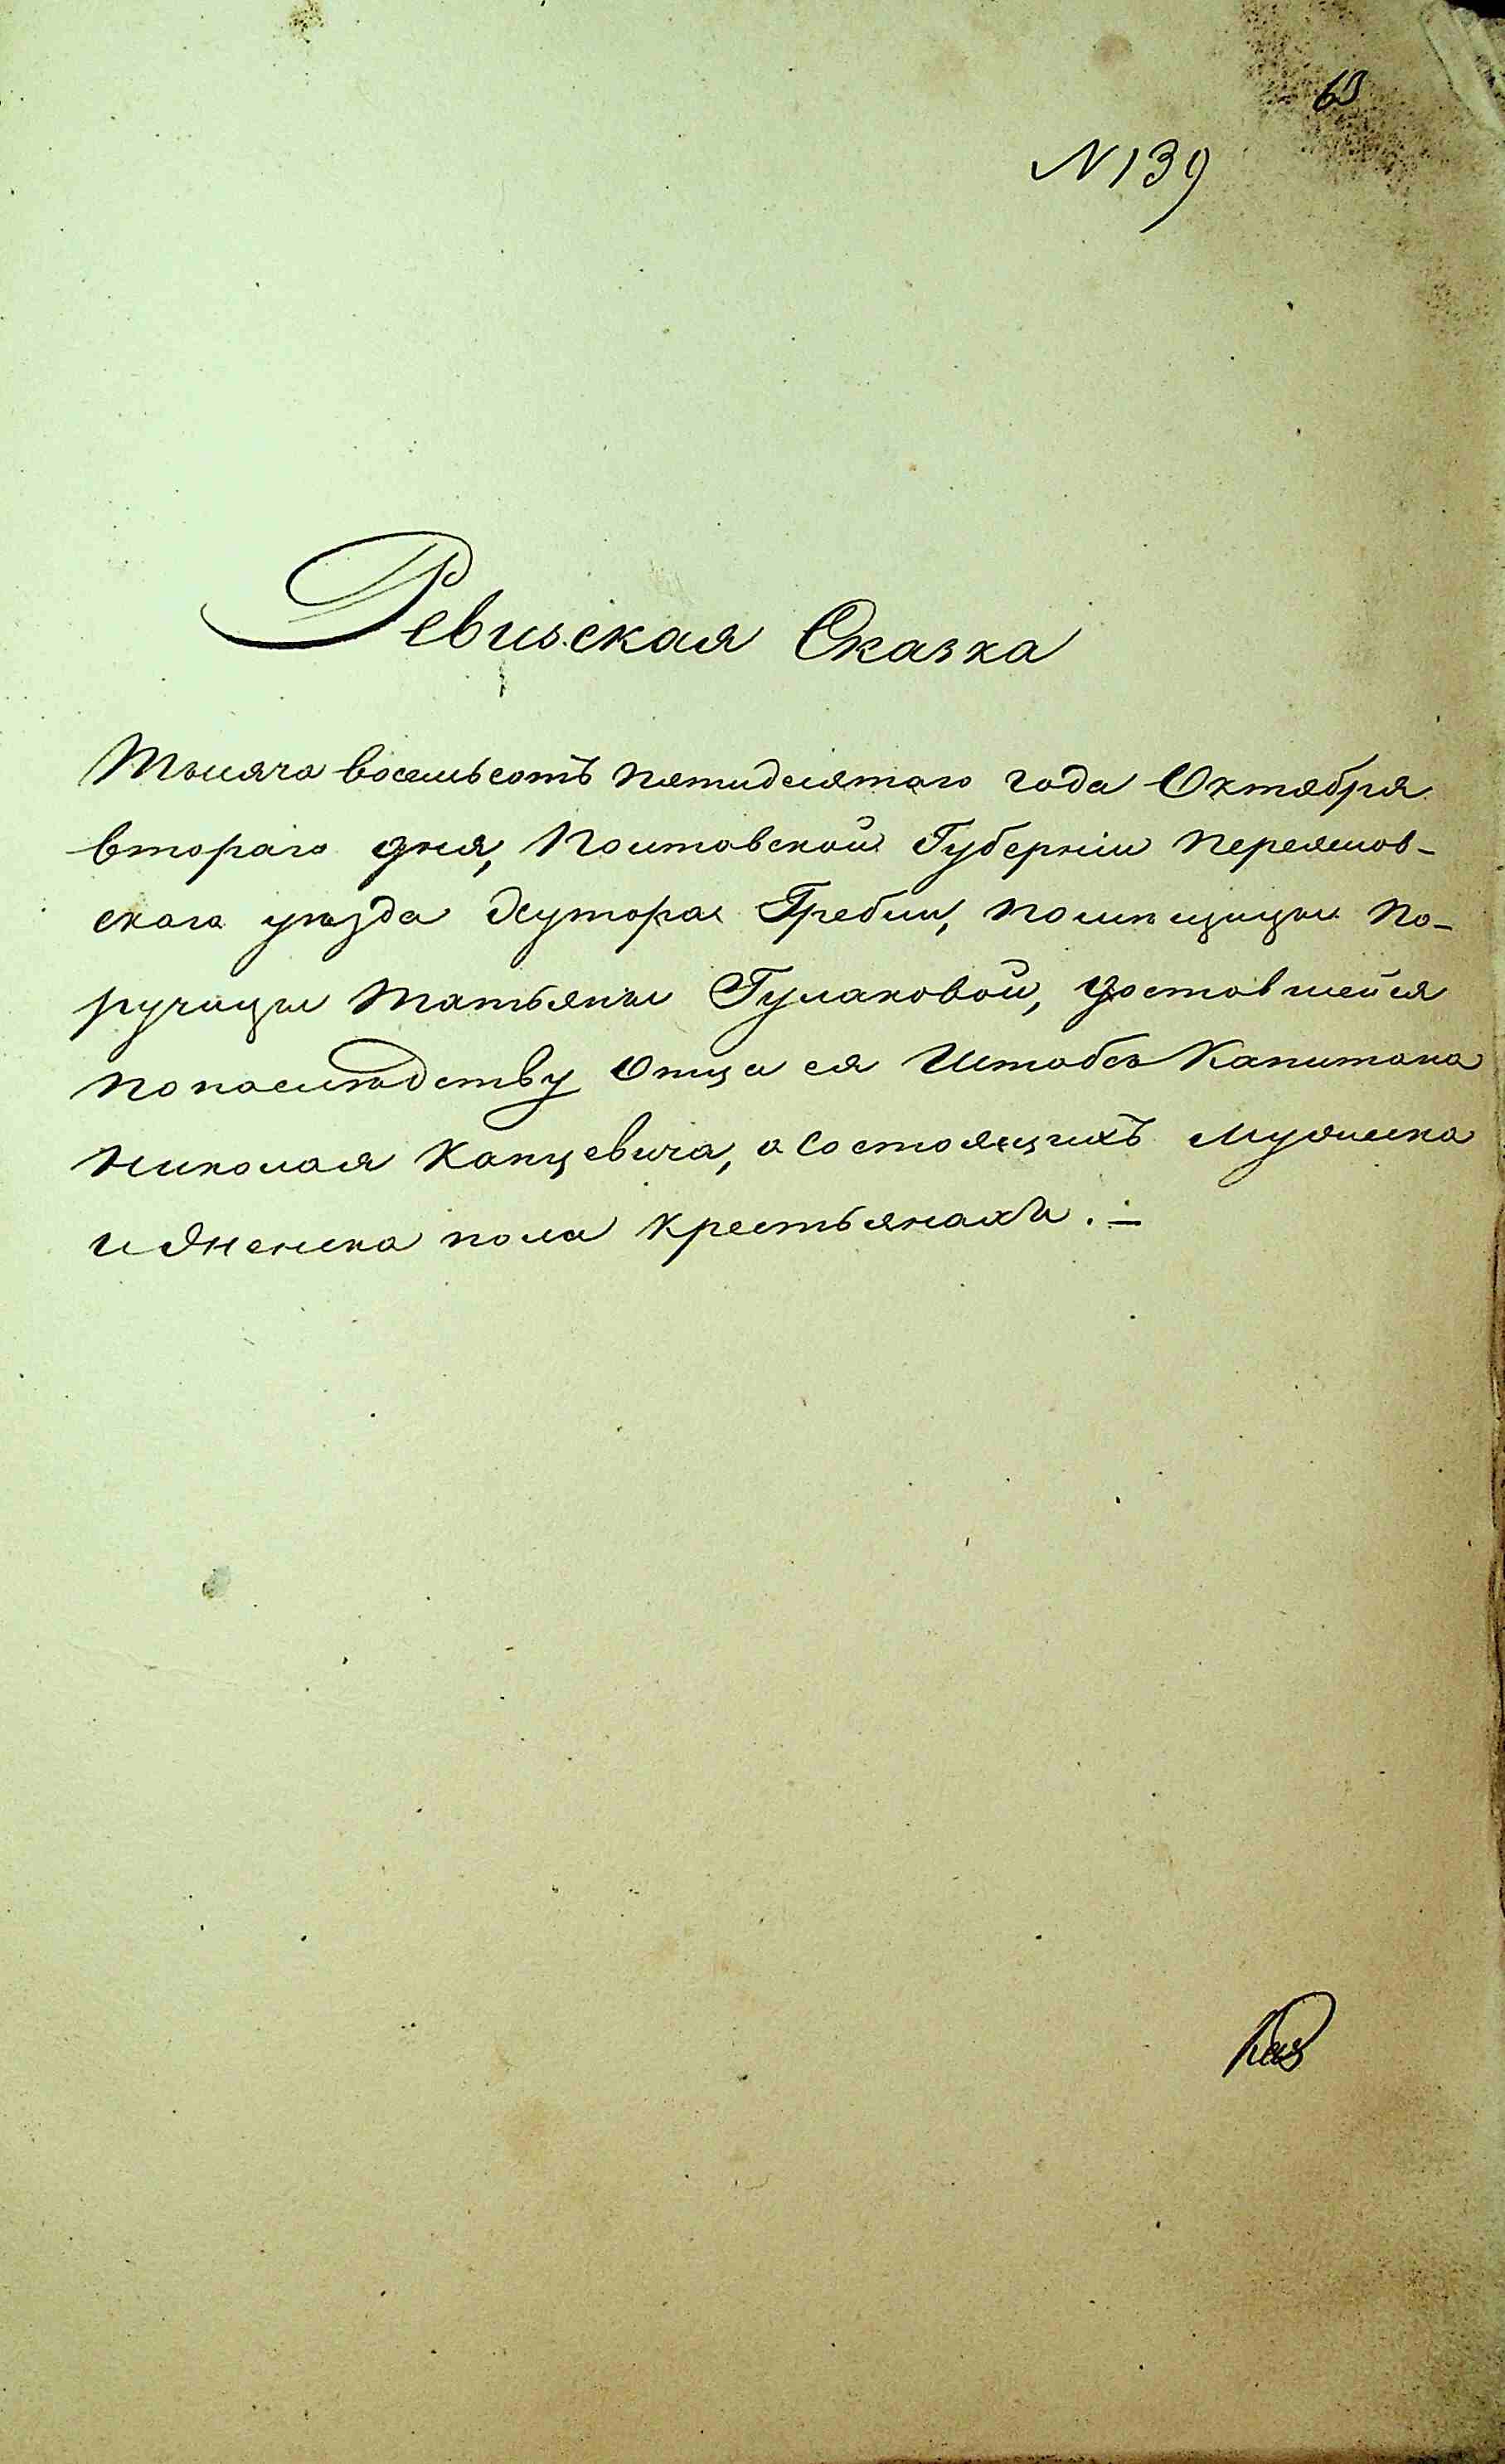 63
N 139
Ревизская Сказка
Тысяча восемьсотъ пятидесятаго года Октября
втораго дня, Полтавской Губерніи Переяслов-
скаго уѣзда Хутора Гребли, помѣщицы По-
ручицы Татьяны Гулаковой, доставшейся
по наслѣдству отца ея Штабсъ Капитана
Николая Капцевича, а состоящихъ Мужеска
и женска пола крестьянахъ. —